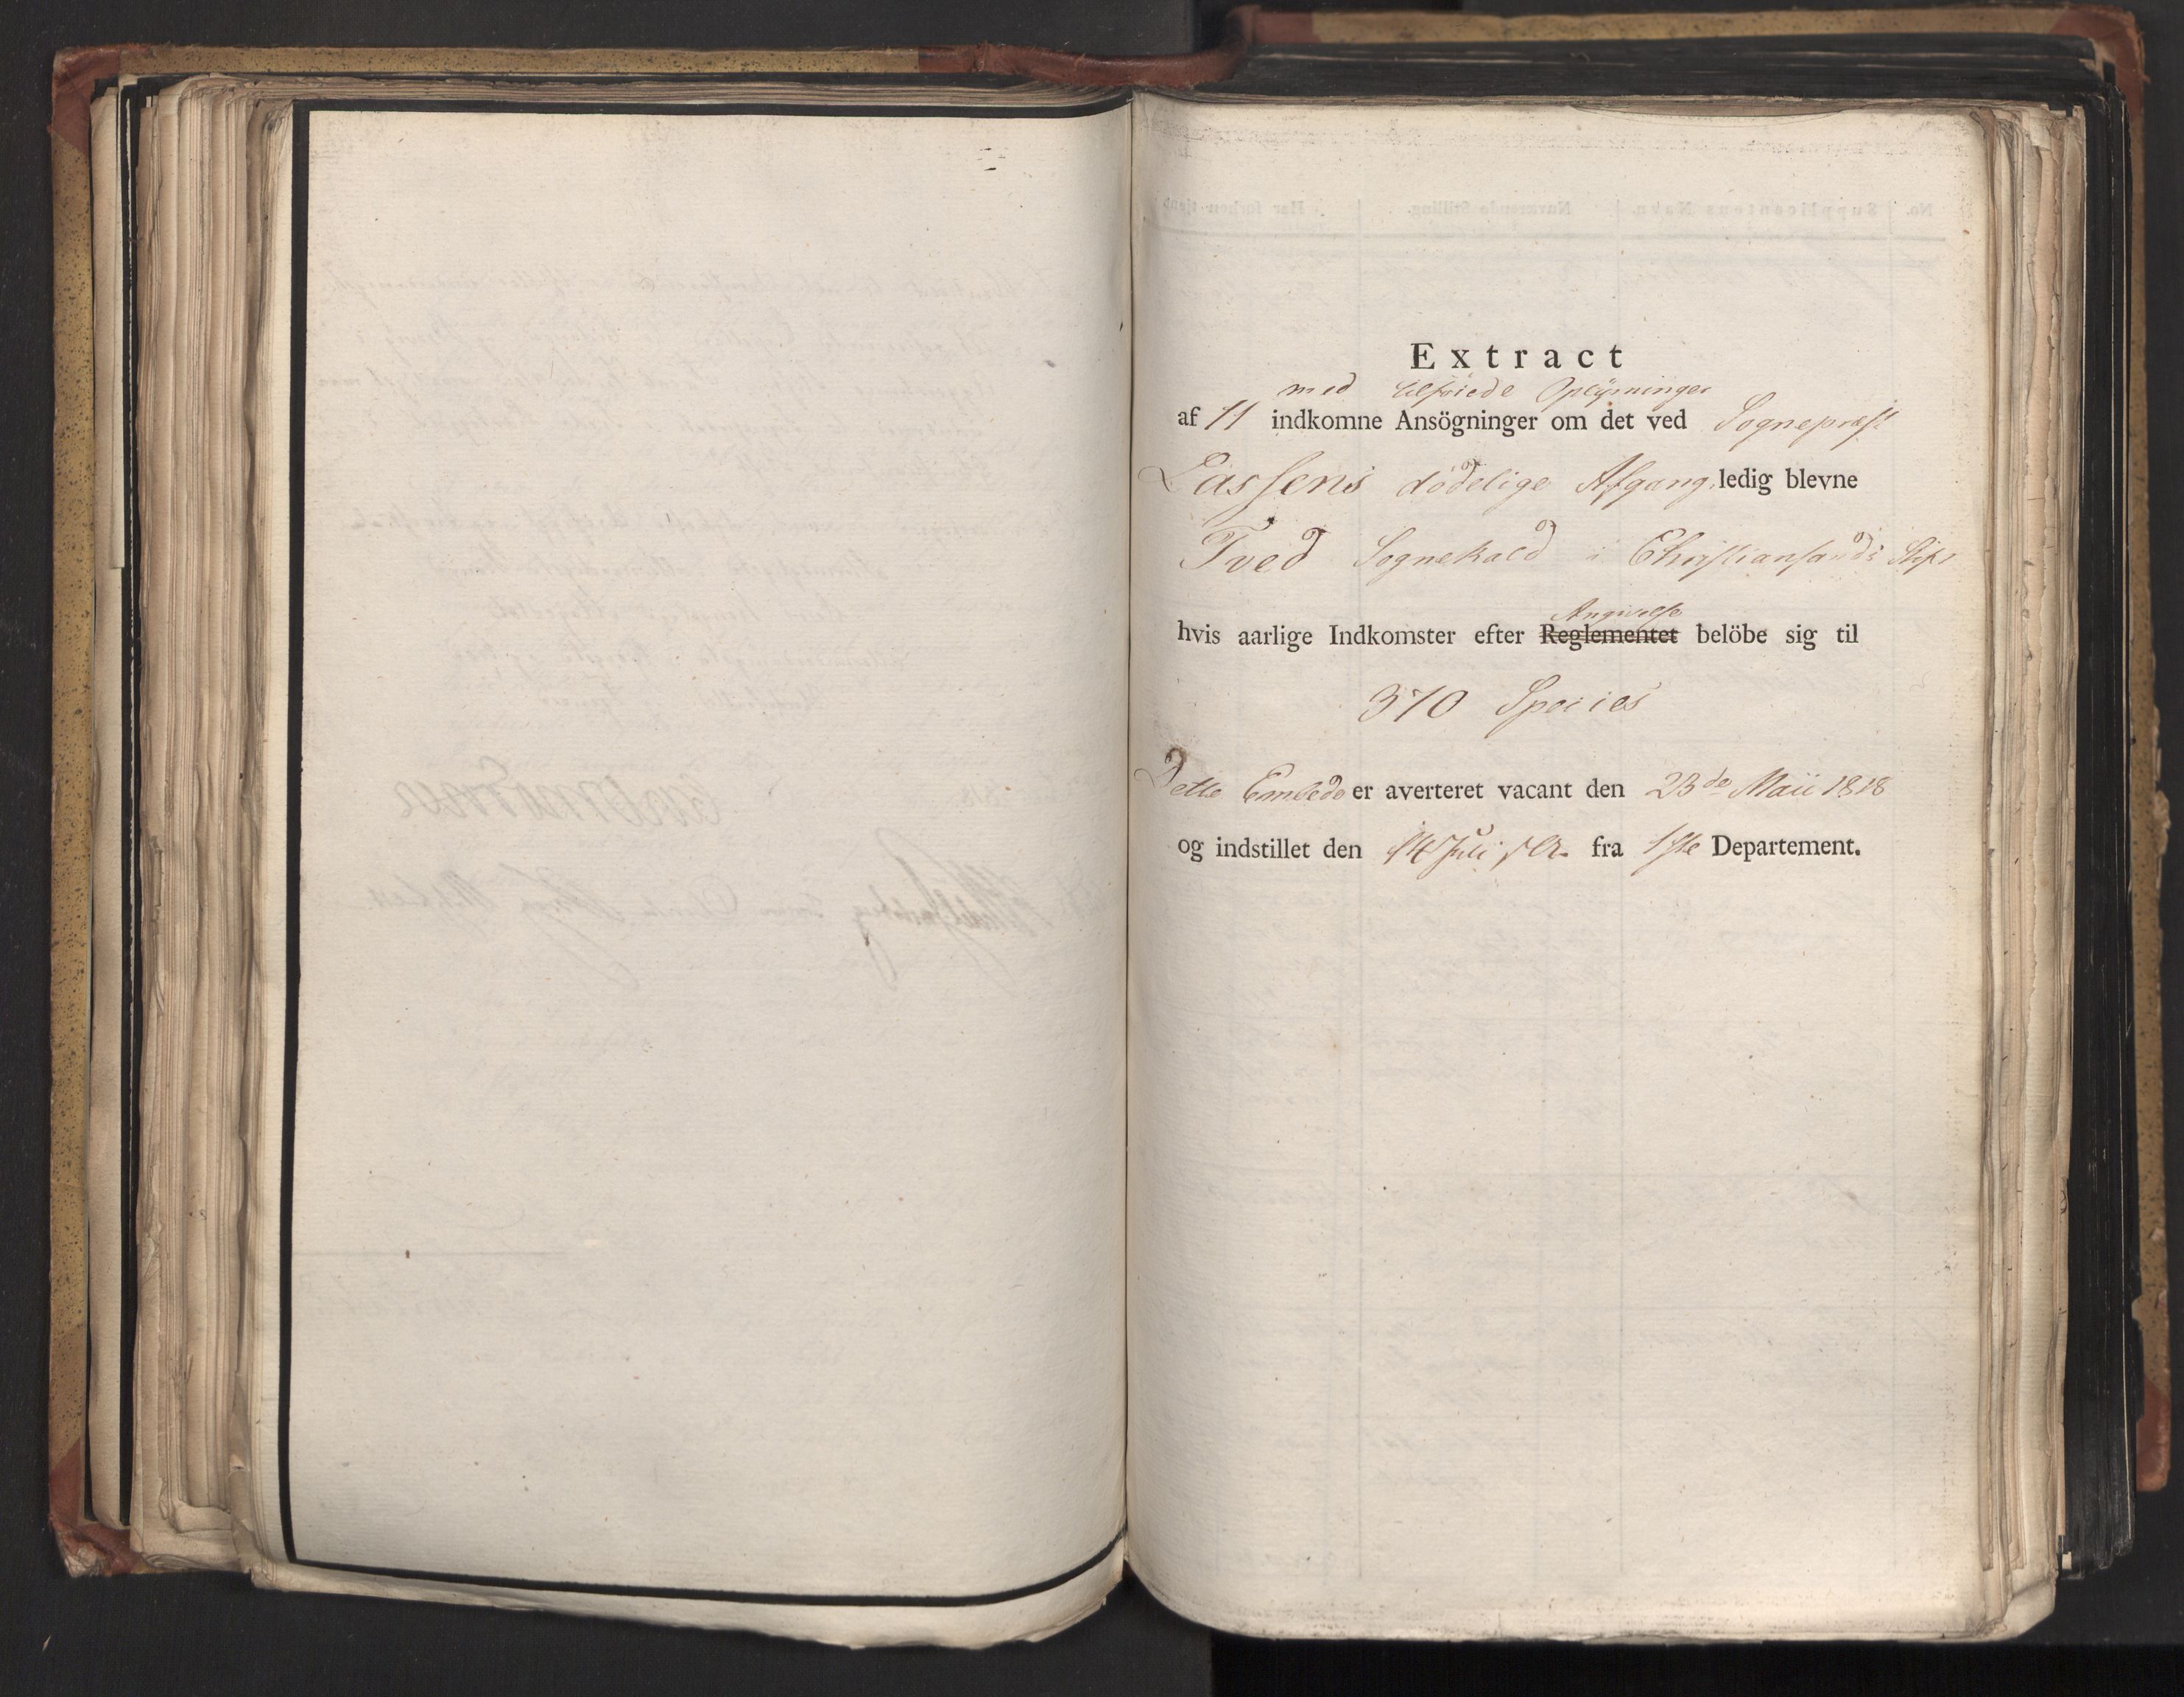 Extract
med tilföiede Oplysninger
af 11 indkomne Ansögninger om det ved Sognepræst
Lassens dödelige Afgang, ledig blevne
Tved Sognekald i Christiansands Stift
Angivelse
hvis aarlige Indkomster efter Reglementet belöbe sig til
370 Species
Dette Embede er averteret vacant den 23de Maii 1818
og indstillet den 14 Juli s. A. fra 1ste Departement.